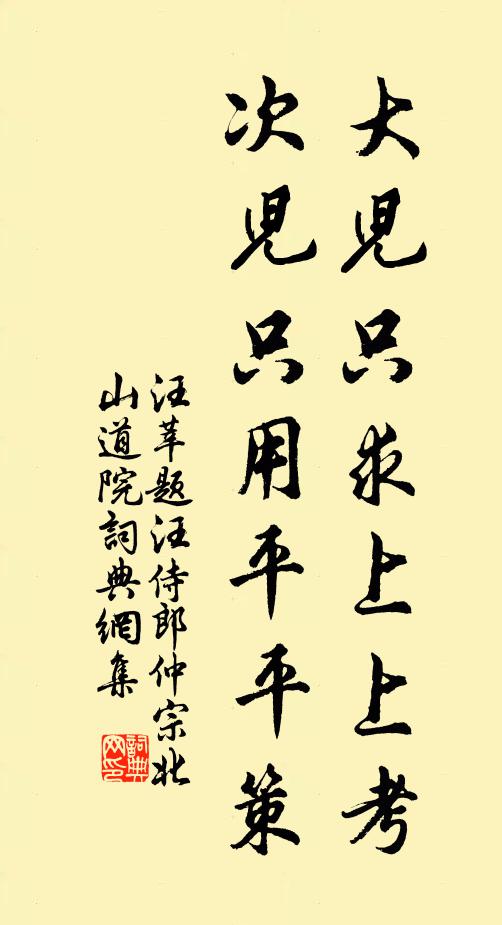 大児只求上上考
次児只用平平策
汪莘题汪侍郎仲宗北
山道院詞典網集
詞典網印